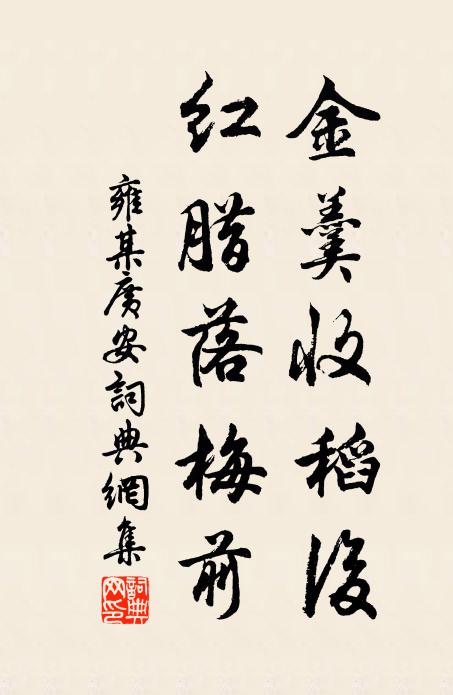 金羹收稻後
紅腊落梅前
雍某廣安詞典網集
詞典网印